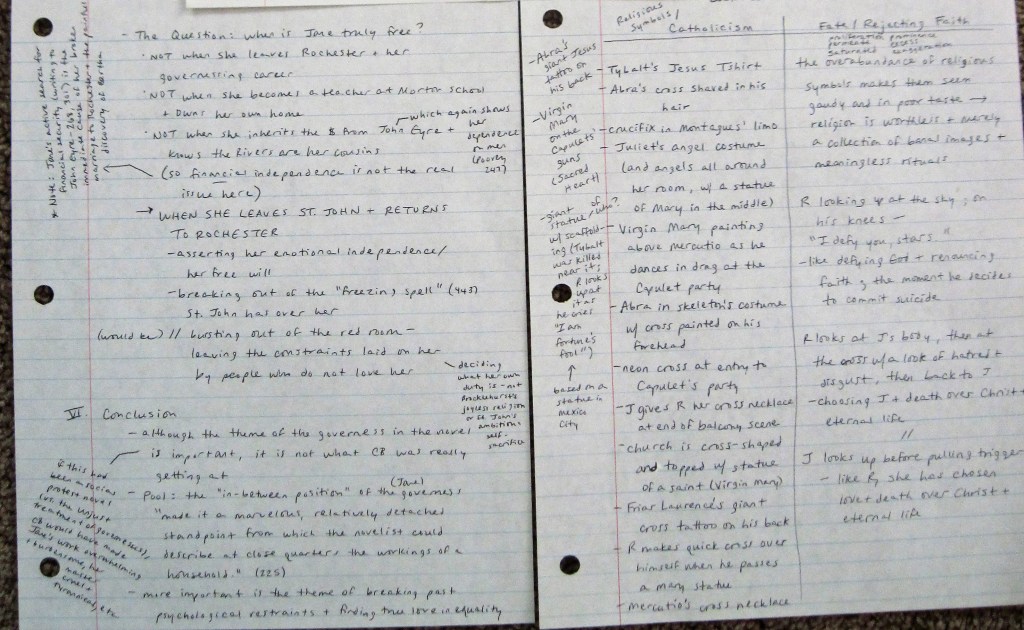 - The Question: when is Jane truly free?
· NOT when she leaves Rochester + her
governessing career
· NOT when she becomes a teacher at Morton School
+ owns her own home
· NOT when she inherits the $ from John Eyre +
which again shows
her
dependence
on men
(Poovey
247)
knows the Rivers are her cousins
(so financial independence is not the real
issue here)
→ WHEN SHE LEAVES ST. JOHN + RETURNS
TO ROCHESTER
- asserting her emotional independence/
her free will
- breaking out of the "freezing spell" (443)
St. John has over her
(would be) // bursting out of the red room -
leaving the constraints laid on her
by people who do not love her
deciding
what her own
duty is - not
Brocklehurst's
joyless religion
or St. John's
ambitious
self-
sacrifice
* Note: Jane's active search for
financial security (writing to
John Eyre - 268, 301) is the
immediate cause of her broken
marriage to Rochester + the painful
discovery of Bertha
VI. Conclusion
- although the theme of the governess in the novel
is important, it is not what CB was really
getting at
(Jane)
- Pool: the "in-between position" of the governess
"made it a marvelous, relatively detached
standpoint from which the novelist could
describe at close quarters the workings of a
household." (225)
- more important is the theme of breaking past
psychological restraints + finding true love in equality
* if this had
been a social
protest novel
(vs. the unjust
treatment of governesses),
CB would have made
Jane's work overwhelming
+ burdensome, her
master
cruel +
tyrannical, etc
Religious
Symbols/
Catholicism
- Tybalt's Jesus Tshirt
- Abra's cross shaved in his
hair
- crucifix in Montagues' limo
- Juliet's angel costume
(and angels all around
her room, w/ a statue
of Mary in the middle)
- Virgin Mary painting
above mercutio as he
dances in drag at the
Capulet party
- Abra in skeleton's costume
w/ cross painted on his
forehead
- neon cross at entry to
Capulet's party
- J gives R her cross necklace
at end of balcony scene
- church is cross-shaped
and topped w/ statue
of a saint (Virgin mary)
- Friar Laurence's giant
cross tattoo on his back
- R makes quick cross over
himself when he passes
a mary statue
- mercutio's cross necklace
- Abra's
giant Jesus
tattoo on
his back
- Virgin
Mary
on the
Capulets'
guns
(Sacred
Heart)
- giant
statue of who?
w/ scaffold-
ing (Tybalt
was killed
near it;
R looks
up at
it as
he cries
"I am
fortune's
fool")
↑
based on a
statue in
mexico
City
Fate / Rejecting Faith
proliferation
permeate excess
saturated exaggeration
the overabundance of religious
symbols makes them seem
gaudy and in poor taste →
religion is worthless + merely
a collection of banal images +
meaningless rituals
R looking up at the sky, on
his knees -
"I defy you, stars"
- like defying God + renouncing
faith @ the moment he decides
to commit suicide
R looks at J's body, then at
the cross w/ a look of hatred +
disgust, then back to J
- choosing J + death over Christ +
eternal life
//
J looks up before pulling trigger
- like R, she has chosen
love + death over Christ +
eternal life